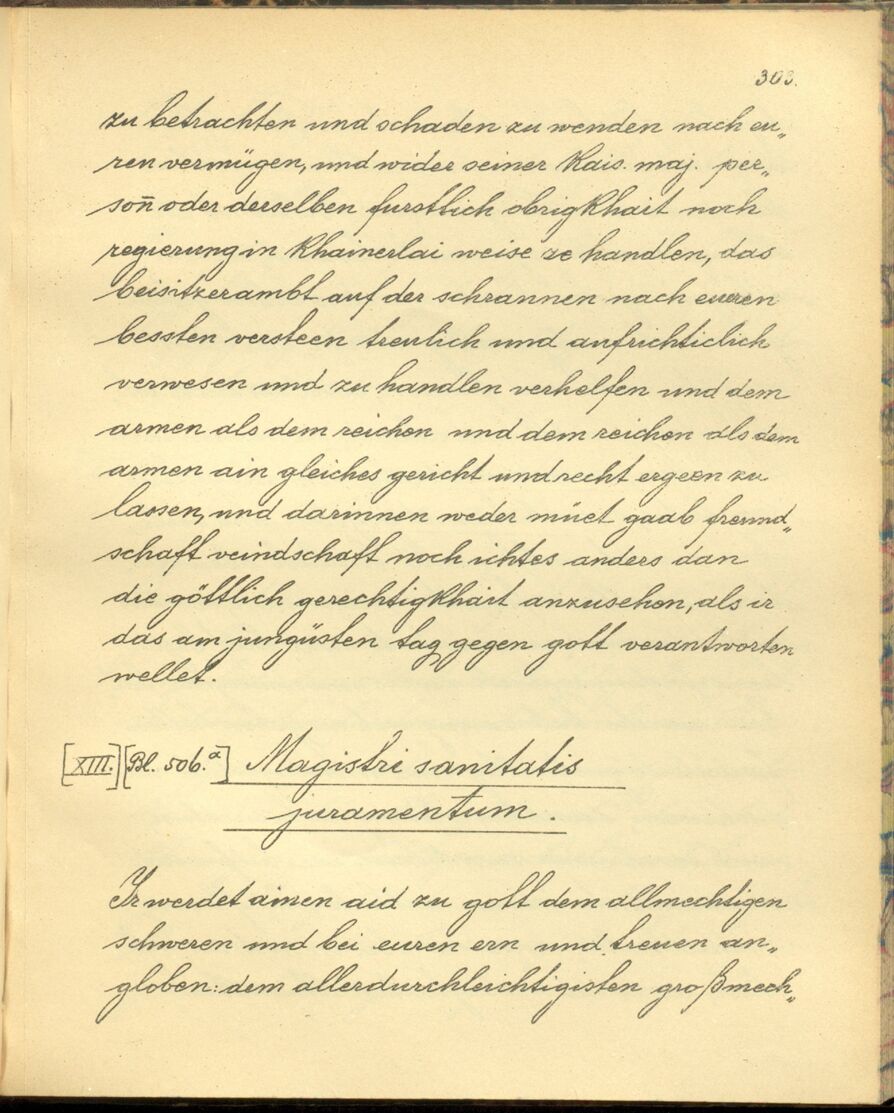 303.
zu betrachten und schaden zu wenden nach eu„
ren vermügen, und wider seiner Kais. maj. per„
son̄ oder derselben furstlich obrigkhait noch
regierung in khainerlai weise ze handlen, das
beisitzerambt auf der schrannen nach eueren
bessten versteen treulich und aufrichticlich
verwesen und zu handlen verhelfen und dem
armen als dem reichen und dem reichen als dem
armen ain gleiches gericht und recht ergeen zu
lassen, und darinnen weder müet gaab freund„
schaft veindschaft noch ichtes anders dan
die göttlich gerechtigkhait anzusehen, als ir
das am jungüsten tag gegen gott verantworten
wellet.
[XIII.] [Bl. 506.a] Magistri sanitatis
juramentum.
Ir werdet ainen aid zu gott dem allmechtigen
schweren und bei euren ern und treuen an„
globen: dem allerdurchleichtigisten großmech„